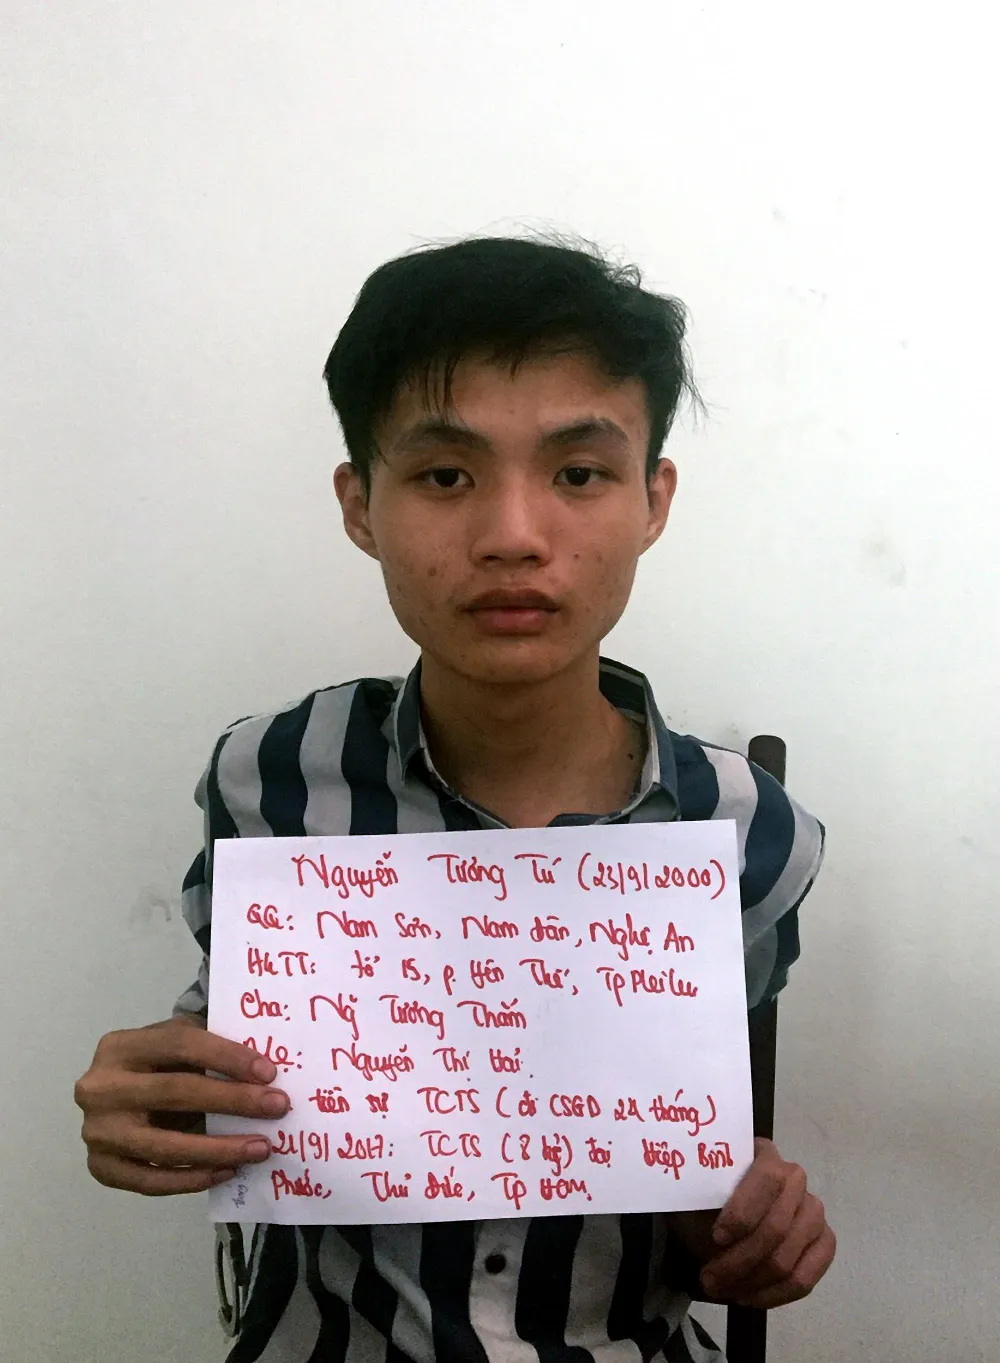 Nguyễn Tương Tú (23/9/2000)
QQ: Nam Sơn, Nam Đàn, Nghệ An
HKTT: tổ 15, p. Yên Thế, Tp Pleiku
Cha: Ng̃ Tương Thắm
Mẹ: Nguyễn Thị Hải.
tiền sự TCTS (đi CSGD 24 tháng)
21/9/2017: TCTS (8 tỷ) tại Hiệp Bình
Phước, Thủ Đức, Tp HCM.